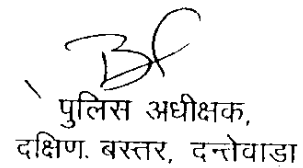 पुलिस अधीक्षक,
दक्षिण. बस्तर, दन्तेवाड़ा